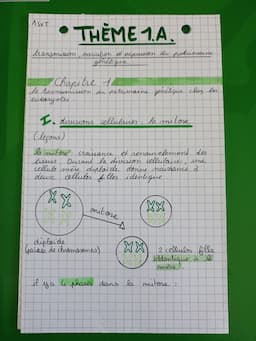 1 SVT
THÈME 1.A.
transmission, variation et expression du patrimoine
génétique
Chapitre 1
la transmission du patrimoine génétique chez les
eucaryotes
I. divisions cellulaires : la mitose
(leçons)
la mitose croissance et renouvellement des
tissus. Durant la division cellulaire, une
cellule mère diploïde donne naissance à
deux cellules filles identiques
mitose
diploïde
(paires de chromosomes)
2 cellules filles
identiques à la
mère
il y a 4 phases dans la mitose :